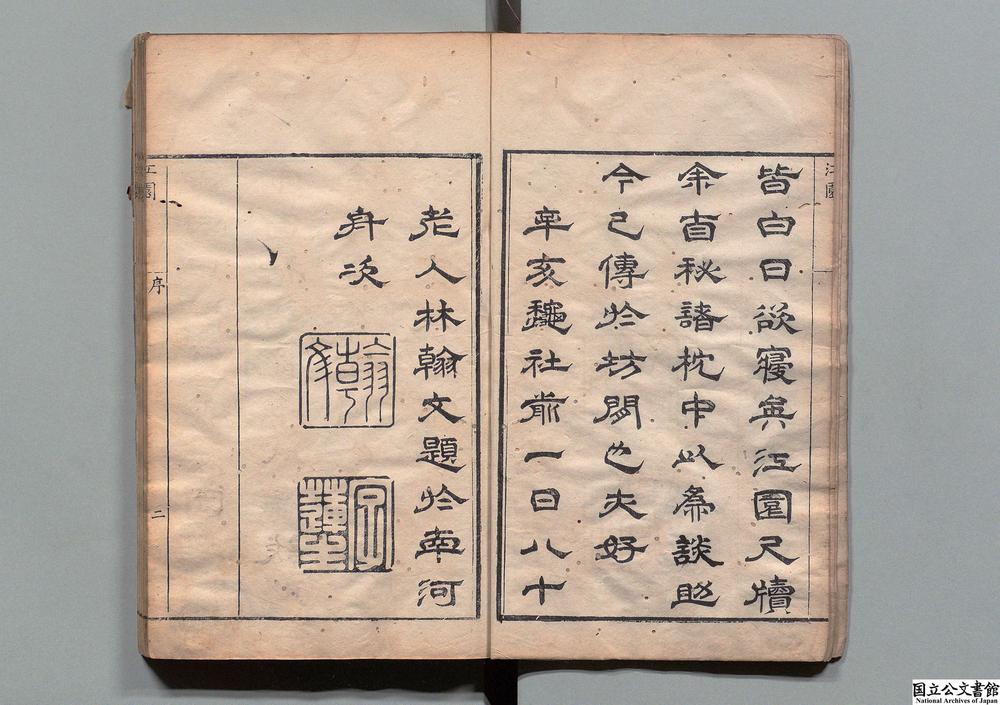 皆白日欲寝矣江園尺牘
余直秘諸枕中以為談助
今已傳於坊間也夫好
辛亥龝社前一日八十
老人林翰文題於南河
舟次
江園
序
二
国立公文書館
National Archives of Japan